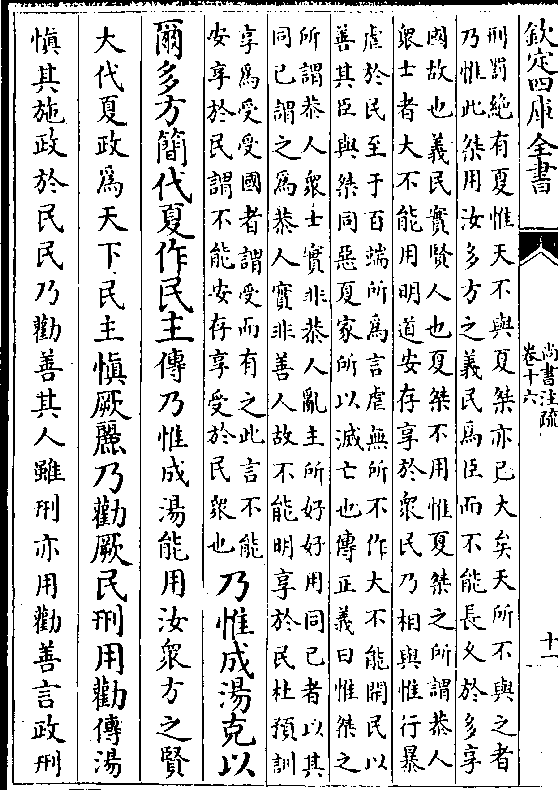 欽定四庫全書
尚書注疏
卷十六
十一
刑罰絶有夏惟天不與夏桀亦已大矣天所不與之者
乃惟此桀用汝多方之義民爲臣而不能長久於多享
國故也義民實賢人也夏桀不用惟夏桀之所謂恭人
衆士者大不能用明道安存享於衆民乃相與惟行暴
虐於民至于百端所爲言虐無所不作大不能開民以
善其臣與桀同惡夏家所以滅亡也傳正義曰惟桀之
所謂恭人衆士實非恭人亂主所好好用同已者以其
同已謂之爲恭人實非善人故不能明享於民杜預訓
享爲受受國者謂受而有之此言不能
安享於民謂不能安存享受於民衆也
乃惟成湯克以
爾多方簡代夏作民主傳乃惟成湯能用汝衆方之賢
大代夏政爲天下民主慎厥麗乃勸厥民刑用勸傳湯
慎其施政於民民乃勸善其人雖刑亦用勸善言政刑